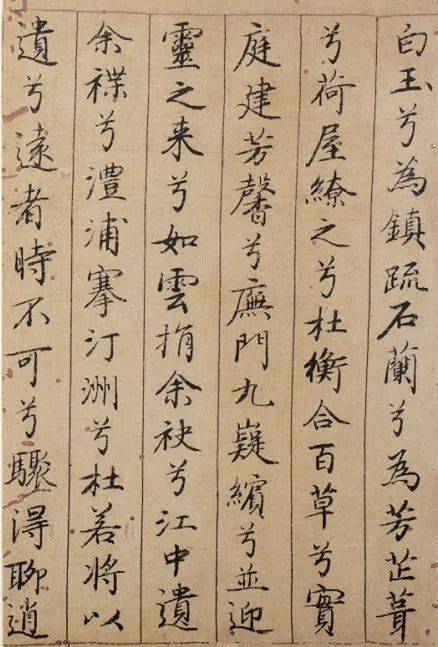 白玉兮為鎮疏石蘭兮為芳芷葺
兮荷屋繚之兮杜衡合百草兮實
庭建芳馨兮廡門九嶷繽兮並迎
靈之来兮如雲捐余袂兮江中遺
余褋兮澧浦搴汀洲兮杜若將以
遺兮遠者時不可兮驟得聊逍